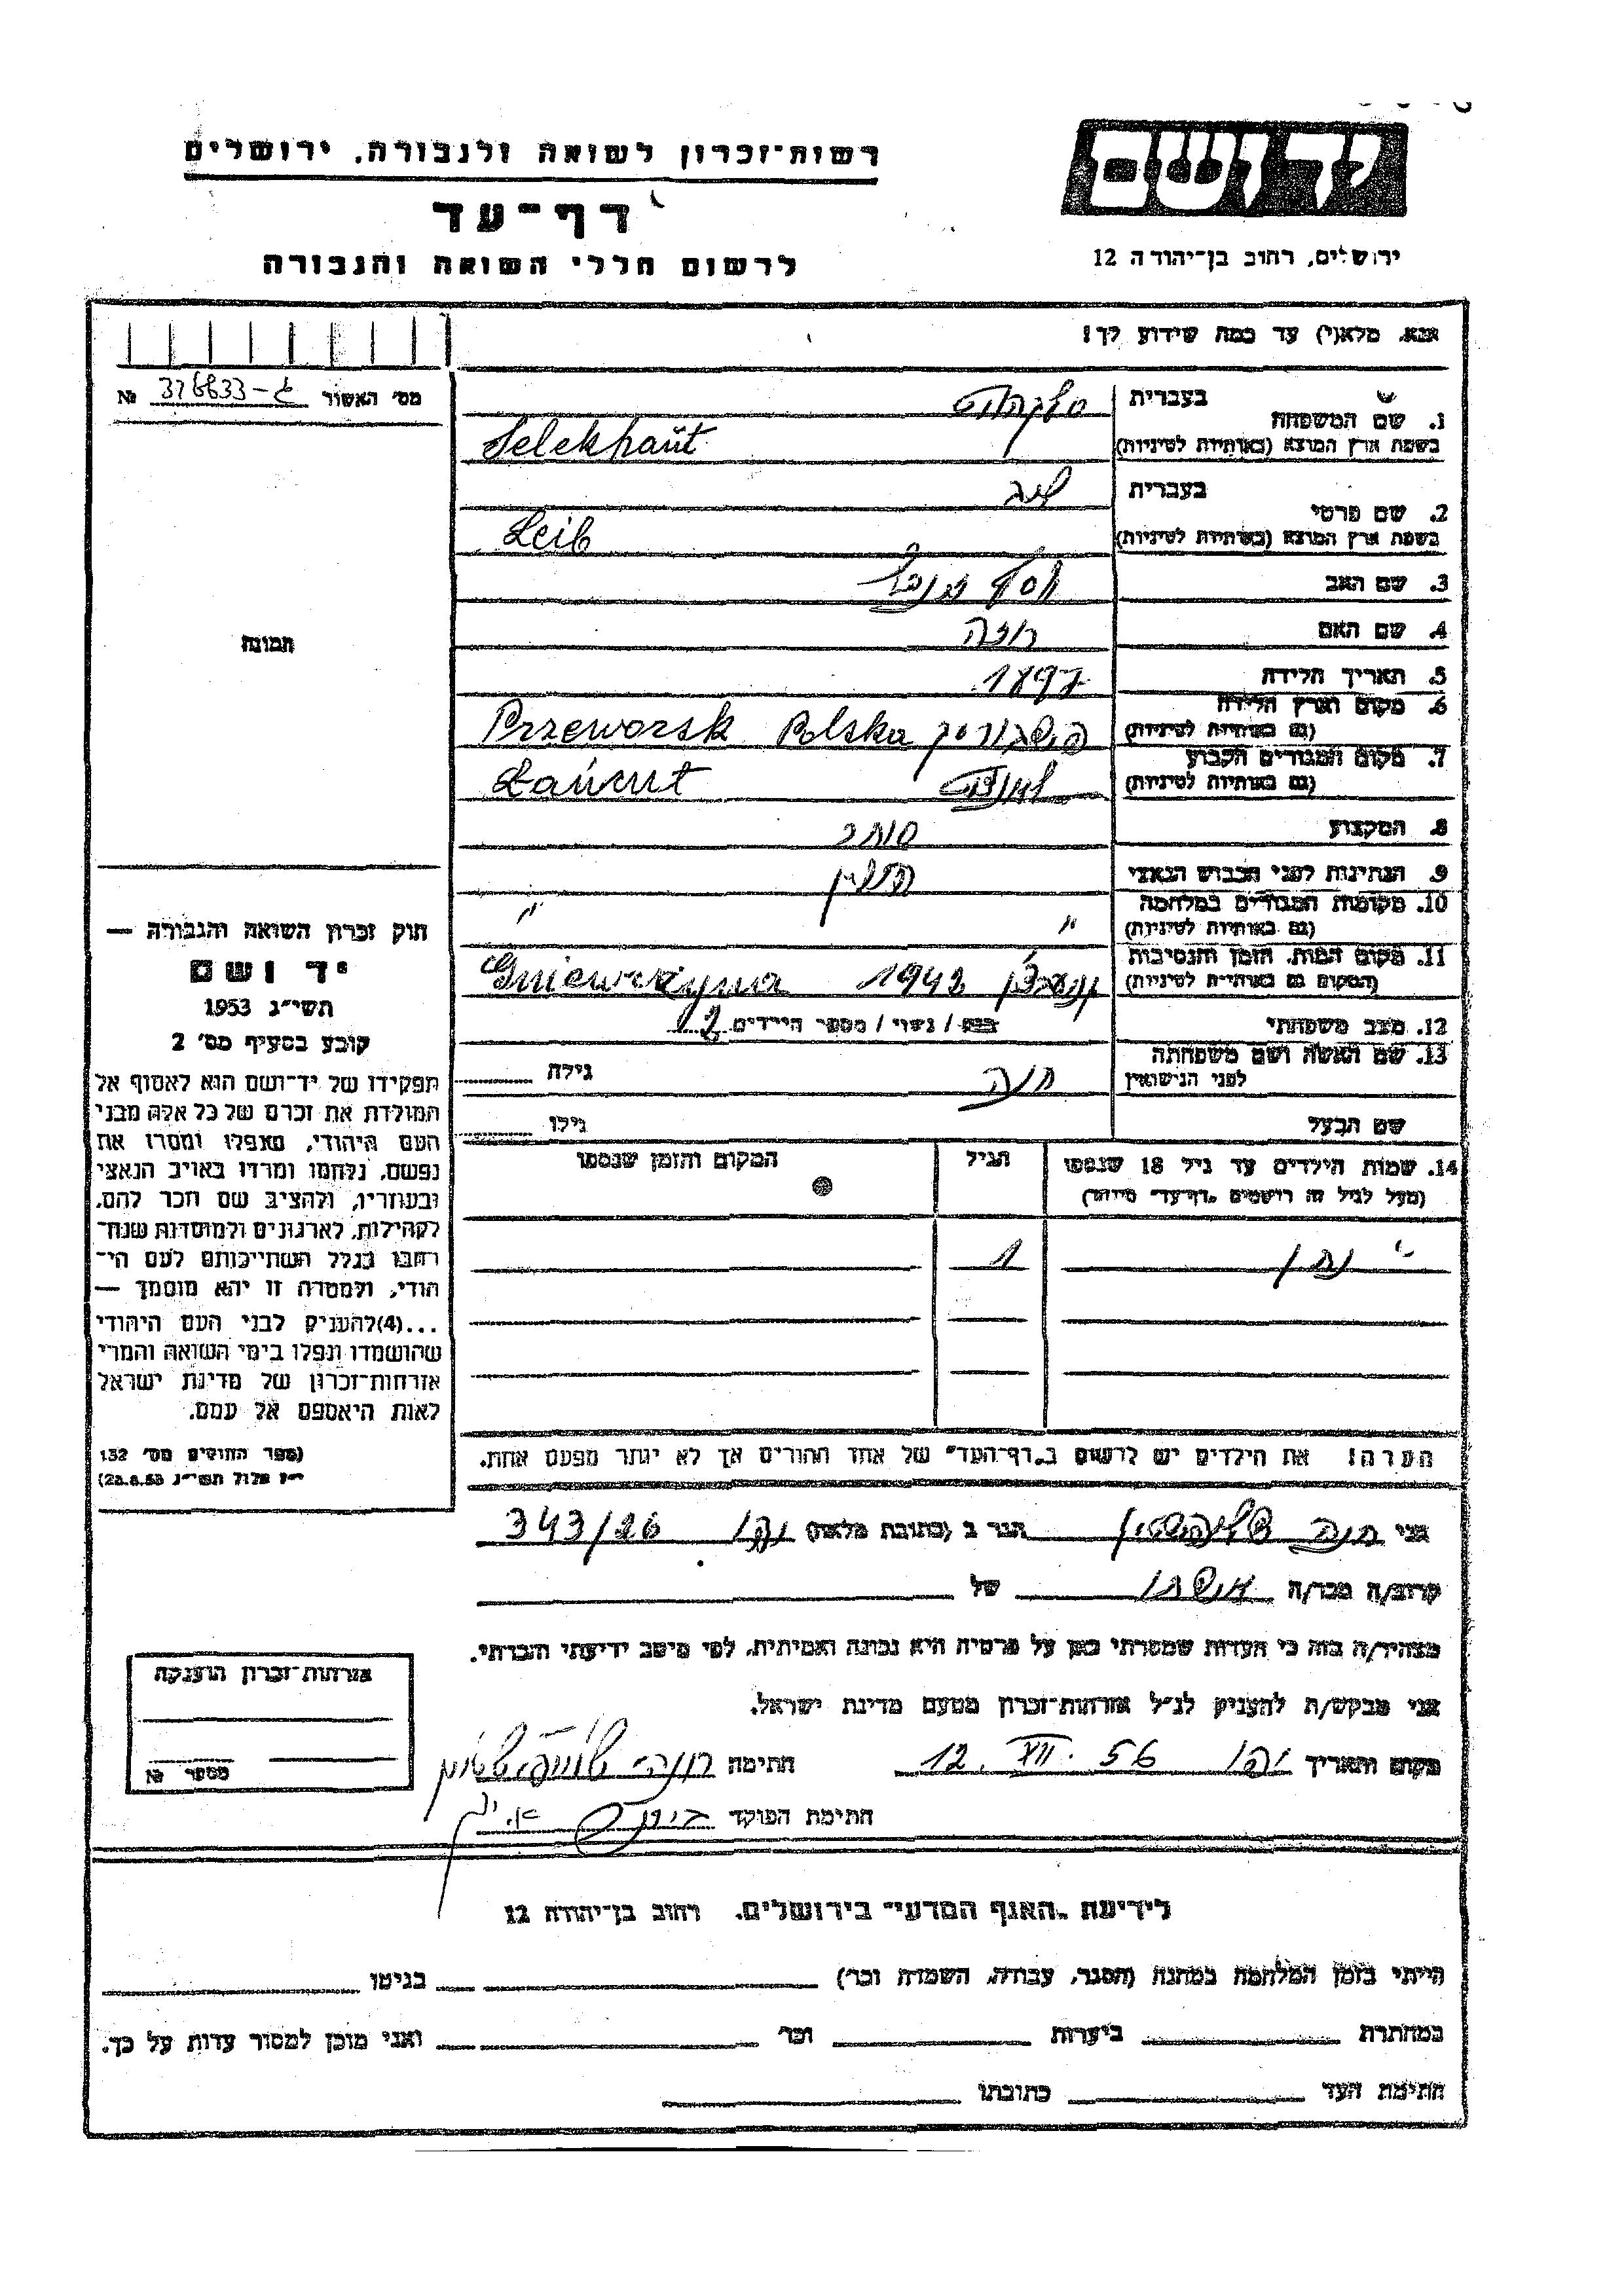 רשות־זכרון לשואה ולגבורה, ירושלים
דף־עד
לרשום חללי השואה והגבורה
יד ושם
ירושלים, רחוב בן־יהודה 12
אנא, מלא(י) עד כמה שידוע לך!
מס' האשור 376833-ג №
1. שם המשפחה
בעברית
בשפת ארץ המוצא (באותיות לטיניות) Selekhaut
2. שם פרטי
בעברית לייב
בשפת ארץ המוצא (באותיות לטיניות) Leib
3. שם האב יוסף מנדל
4. שם האם
5. תאריך הלידה 1897
6. מקום וארץ הלידה
(גם באותיות לטיניות) Przeworsk Polska
7. מקום המגורים הקבוע
(גם באותיות לטיניות) Łańcut
8. המקצוע סוחר
9. הנתינות לפני הכבוש הנאצי פולין
10. מקומות המגורים במלחמה
(גם באותיות לטיניות) " "
11. מקום המות, הזמן והנסיבות
(המקום גם באותיות לטיניות) 1942 Gniewczyna
12. מצב משפחתי רווק / נשוי / מספר הילדים 2
13. שם האשה ושם משפחתה
לפני הנישואין חנה גילה
שם הבעל גילו
14. שמות הילדים עד גיל 18 שנספו
(מעל לגיל זה רושמים "דף־עד" מיוחד)
הגיל
המקום והזמן שנספו
נתן 1
הערה! את הילדים יש לרשום ב"דף־העד" של אחד ההורים אך לא יותר מפעם אחת.
תמונה
חוק זכרון השואה והגבורה —
יד ושם
תשי"ג 1953
קובע בסעיף מס' 2
תפקידו של יד־ושם הוא לאסוף אל
המולדת את זכרם של כל אלה מבני
העם היהודי, שנפלו ומסרו את
נפשם, נלחמו ומרדו באויב הנאצי
ובעוזריו, ולהציב שם וזכר להם,
לקהילות, לארגונים ולמוסדות שנח־
רבו בגלל השתייכותם לעם הי־
הודי, ולמטרה זו יהא מוסמך —
...(4)להעניק לבני העם היהודי
שהושמדו ונפלו בימי השואה והמרי
אזרחות־זכרון של מדינת ישראל
לאות היאספם אל עמם.
(ספר החוקים מס' 132
י"ז אלול תשי"ג 28.8.53)
אני חנה הגר ב (כתובת מלאה) יפו 343/26
קרוב/ה מכר/ה אישתו של
מצהיר/ה בזה כי העדות שמסרתי כאן על פרטיה היא נכונה ואמיתית, לפי מיטב ידיעתי והכרתי.
אני מבקש/ת להעניק לנ"ל אזרחות־זכרון מטעם מדינת ישראל.
מקום ותאריך יפו 12. XII. 56 חתימה
חתימת הפוקד
אזרחות־זכרון הוענקה
מספר №
לידיעת "האגף המדעי" בירושלים, רחוב בן־יהודה 12
הייתי בזמן המלחמה במחנה (הסגר, עבודה, השמדה וכו') בגיטו
במחתרת ביערות וכו' ואני מוכן למסור עדות על כך.
חתימת העד כתובתו